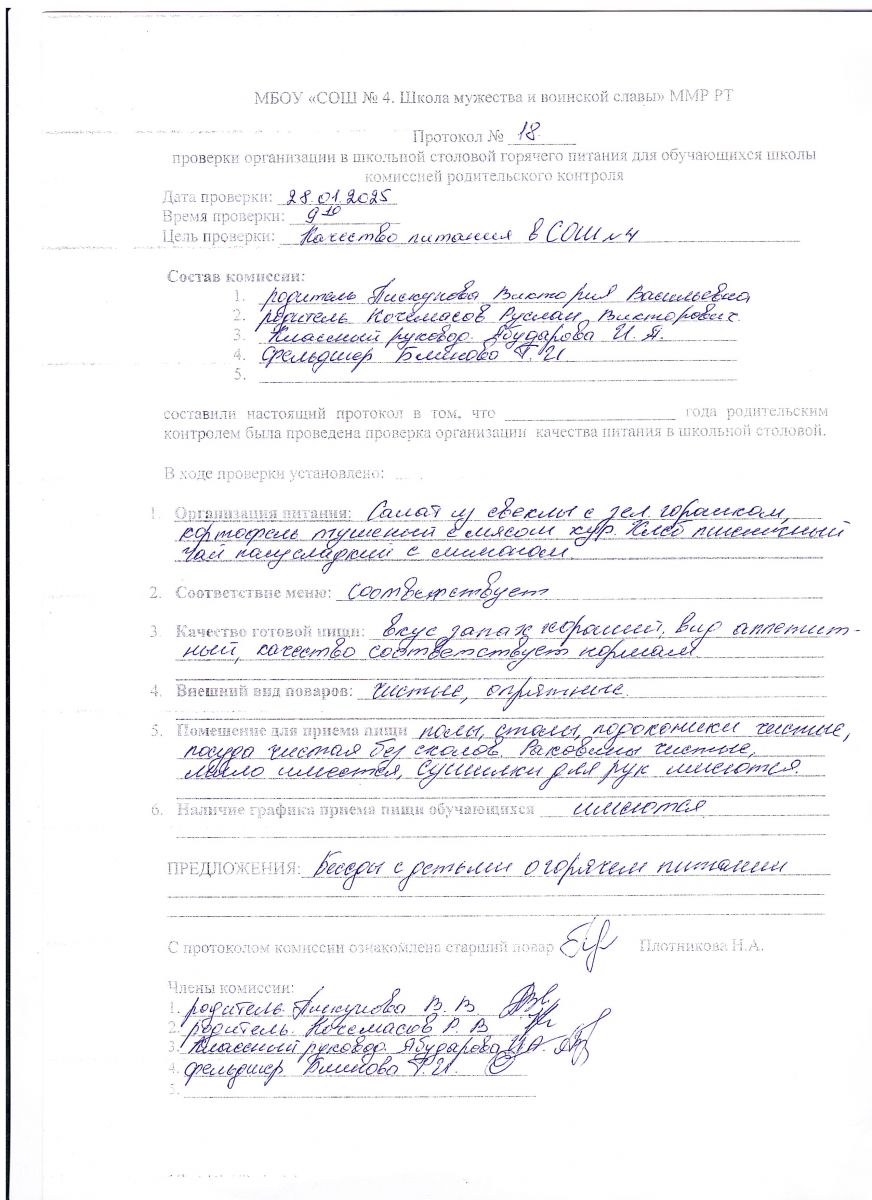 МБОУ «СОШ № 4. Школа мужества и воинской славы» ММР РТ
Протокол № 18
проверки организации в школьной столовой горячего питания для обучающихся школы
комиссией родительского контроля
Дата проверки: 28.01.2025
Время проверки: 9 10
Цель проверки: Качество питания в СОШ №4
Состав комиссии:
1. родитель Пискунова Виктория Васильевна
2. родитель Кочемасов Руслан Викторович
3. Классный руковод. Ябударова И. А.
4. Фельдшер Блинова Г. И
5.
составили настоящий протокол в том, что ____ года родительским
контролем была проведена проверка организации качества питания в школьной столовой.
В ходе проверки установлено:
1. Организация питания: Салат из свеклы с зел. горошком,
картофель тушеный с мясом кур. Хлеб пшеничный
Чай полусладкий с лимоном.
2. Соответствие меню: соответствует
3. Качество готовой пищи: вкус запах хороший, вид аппетит-
ный, качество соответствует нормам
4. Внешний вид поваров: чистые, опрятные.
5. Помещение для приема пищи полы, столы, подоконики чистые,
посуда чистая без сколов. Раковины чистые,
мыло имеется, сушилки для рук имеются.
6. Наличие графика приема пищи обучающихся имеются
ПРЕДЛОЖЕНИЯ: Беседы с детьми о горячем питании
С протоколом комиссии ознакомлена старший повар Плотникова Н.А.
Члены комиссии:
1. родитель Пискунова В. В.
2. родитель Кочемасов Р. В
3. Классный руковод. Ябударова И.А.
4. фельдшер Блинова Г.И.
5.